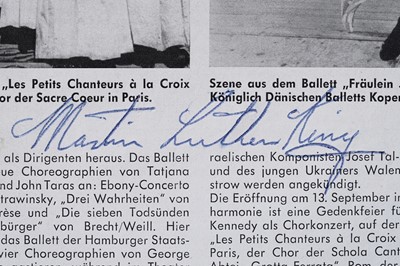 „Les Petits Chanteurs à la Croix
or der Sacre Coeur in Paris.
Szene aus dem Ballett „Fräulein
Königlich Dänischen Balletts Kopen
Martin Luther King
als Dirigenten heraus. Das Ballett
ue Choreographien von Tatjana
und John Taras an: Ebony-Concerto
trawinsky, „Drei Wahrheiten“ von
rèse und „Die sieben Todsünden
bürger“ von Brecht/Weill. Hier
das Ballett der Hamburger Staats-
vier Choreographien von George
raelischen Komponisten Josef Tal-
und des jungen Ukrainers Walen
strow werden angekündigt.
Die Eröffnung am 13. September in
harmonie ist eine Gedenkfeier für
Kennedy als Chorkonzert, auf der
„Les Petits Chanteurs à la Croix
Paris, der Chor der Schola Cant